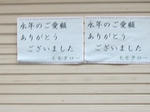 永年のご愛顧
ありがとう
ございました
永年のご愛顧
ありがとう
ございました